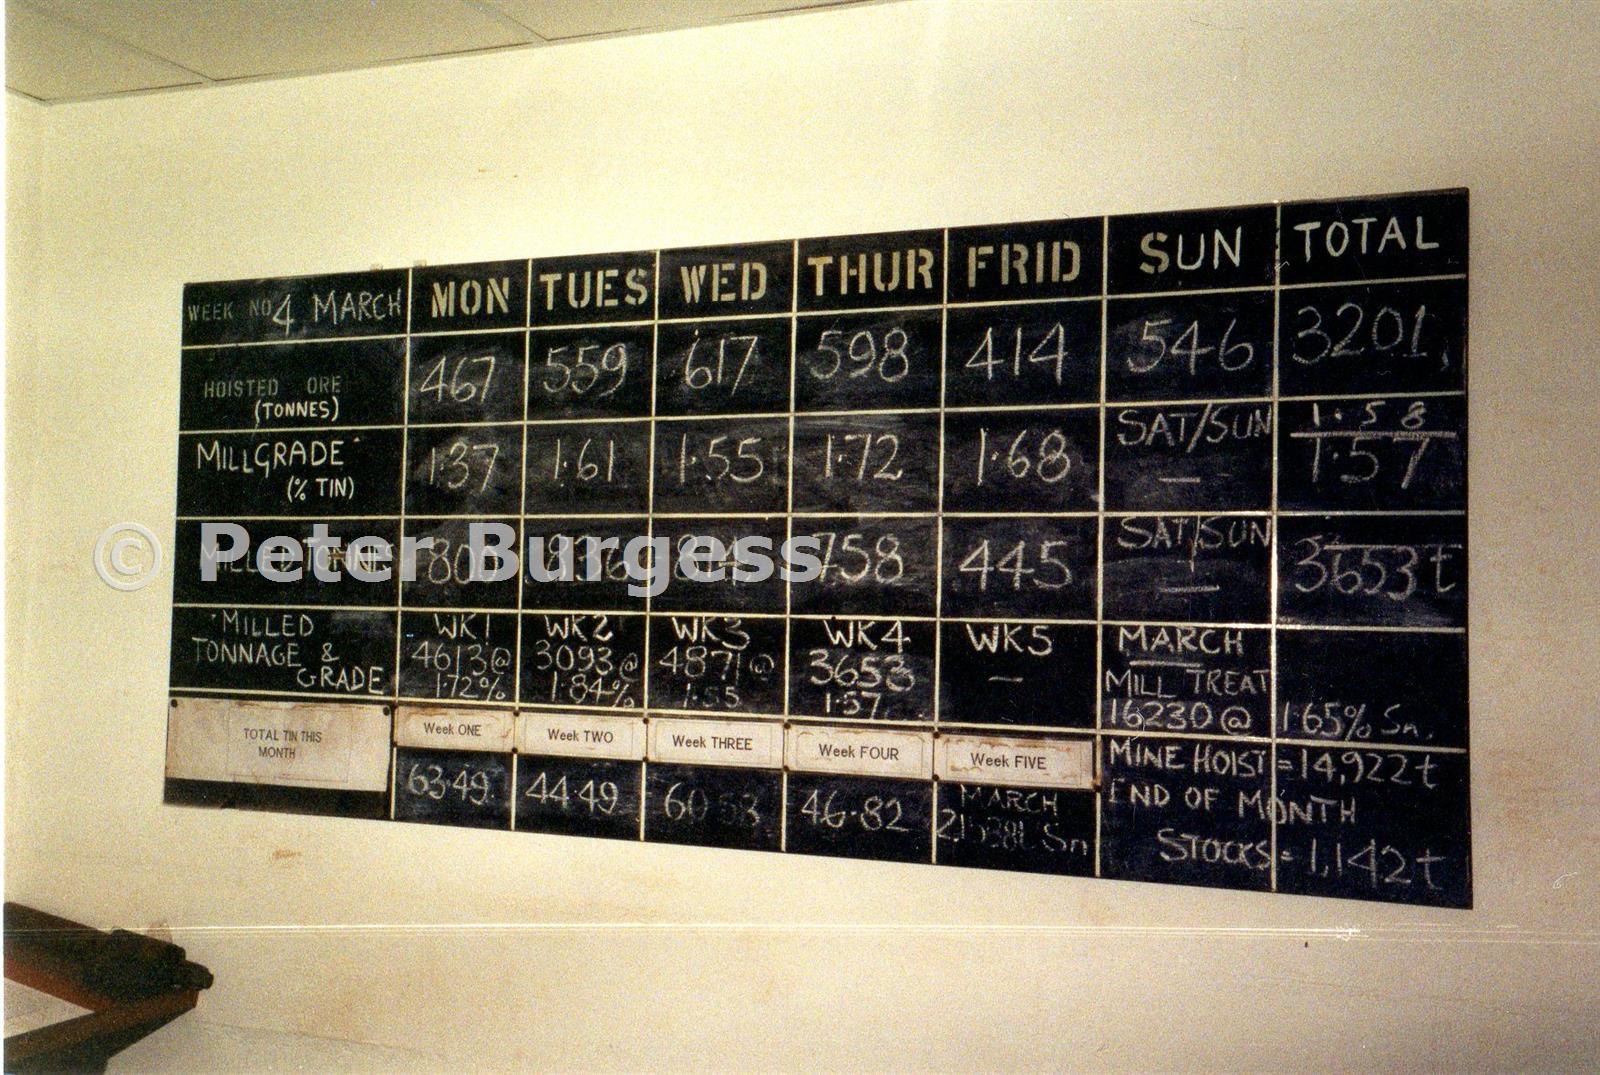 WEEK NO 4 MARCH MON TUES WED THUR FRID SUN TOTAL
HOISTED ORE (TONNES) 467 559 617 598 414 546 3201
MILLGRADE (% TIN) 1.37 1.61 1.55 1.72 1.68 SAT/SUN — 1.58 1.57
MILLED TONNES 800 836 814 758 445 SAT/SUN — 3653t
MILLED
TONNAGE &
GRADE
WK1
4613@
1.72%
WK2
3093@
1.84%
WK3
4871@
1.55
WK4
3653
1.57
WK5
—
MARCH
MILL TREAT
16230@ 1.65% Sn.
TOTAL TIN THIS
MONTH
Week ONE Week TWO Week THREE Week FOUR Week FIVE
63.49 44.49 46.82
MARCH
Sn
MINE HOIST = 14,922t
END OF MONTH
STOCKS = 1,142t
© Peter Burgess